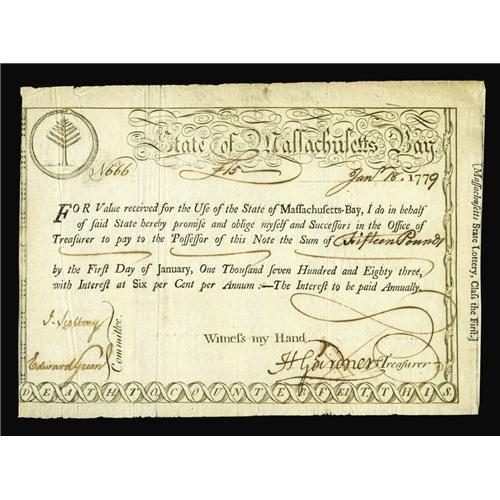 State of Massachusetts Bay
No 666 £15 Jany 18. 1779
FOR Value received for the Use of the State of Massachusetts-Bay, I do in behalf
of said State hereby promise and oblige myself and Successors in the Office of
Treasurer to pay to the Possessor of this Note the Sum of Fifteen Pounds
by the First Day of January, One Thousand seven Hundred and Eighty three,
with Interest at Six per Cent per Annum :—The Interest to be paid Annually.
Witness my Hand
Edward Green
Committee.
H Gardner Treasurer
DEATH TO COUNTERFEIT THIS
[Massachusetts State Lottery, Class the First.]